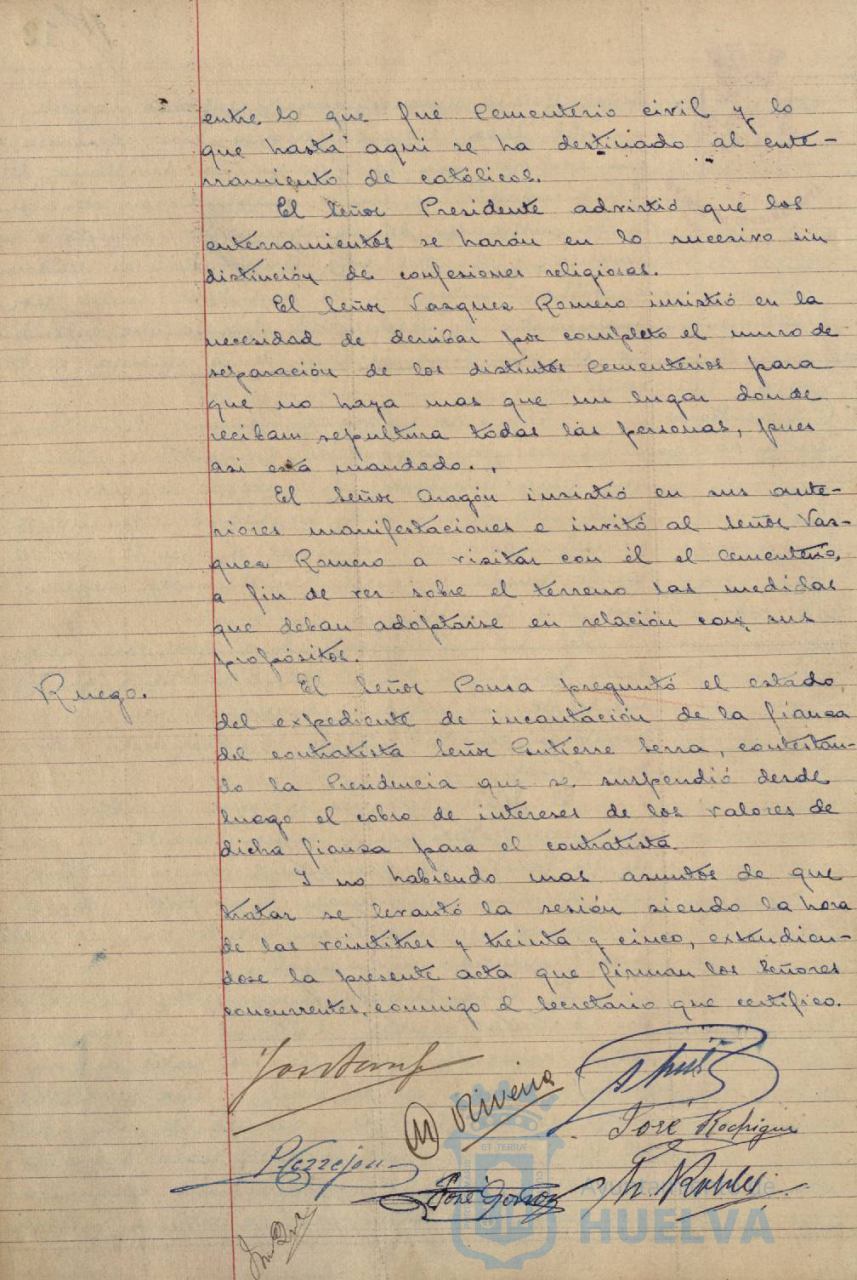 entre lo que fué Cementerio civil y lo
que hasta aqui se ha destinado al ente-
rramiento de católicos.
El Señor Presidente advirtió que los
enterramientos se harán en lo sucesivo sin
distinción de confesiones religiosas.
El Señor Vazquez Romero insistió en la
necesidad de derribar por completo el muro de
separación de los distintos Cementerios para
que no haya mas que un lugar donde
reciban sepultura todas las personas, pues
asi está mandado.
El Señor Aragón insistió en sus ante-
riores manifestaciones e invitó al Señor Vaz-
quez Romero a visitar con él el Cementerio,
a fin de ver sobre el terreno las medidas
que deban adoptarse en relación con sus
propósitos.
Ruego.
El Señor Ponsa preguntó el estado
del expediente de incautación de la fianza
del contratista Señor Gutierre Serra, contestan-
do la Presidencia que se suspendió desde
luego el cobro de intereses de los valores de
dicha fianza para el contratista.
Y no habiendo mas asuntos de que
tratar se levantó la sesión siendo la hora
de las veintitres y treinta y cinco, extendien-
dose la presente acta que firman los Señores
concurrentes, conmigo el Secretario que certifico.
M Rivera
José Rodrigue
P Cerrejon
José
M. Robles
HUELVA